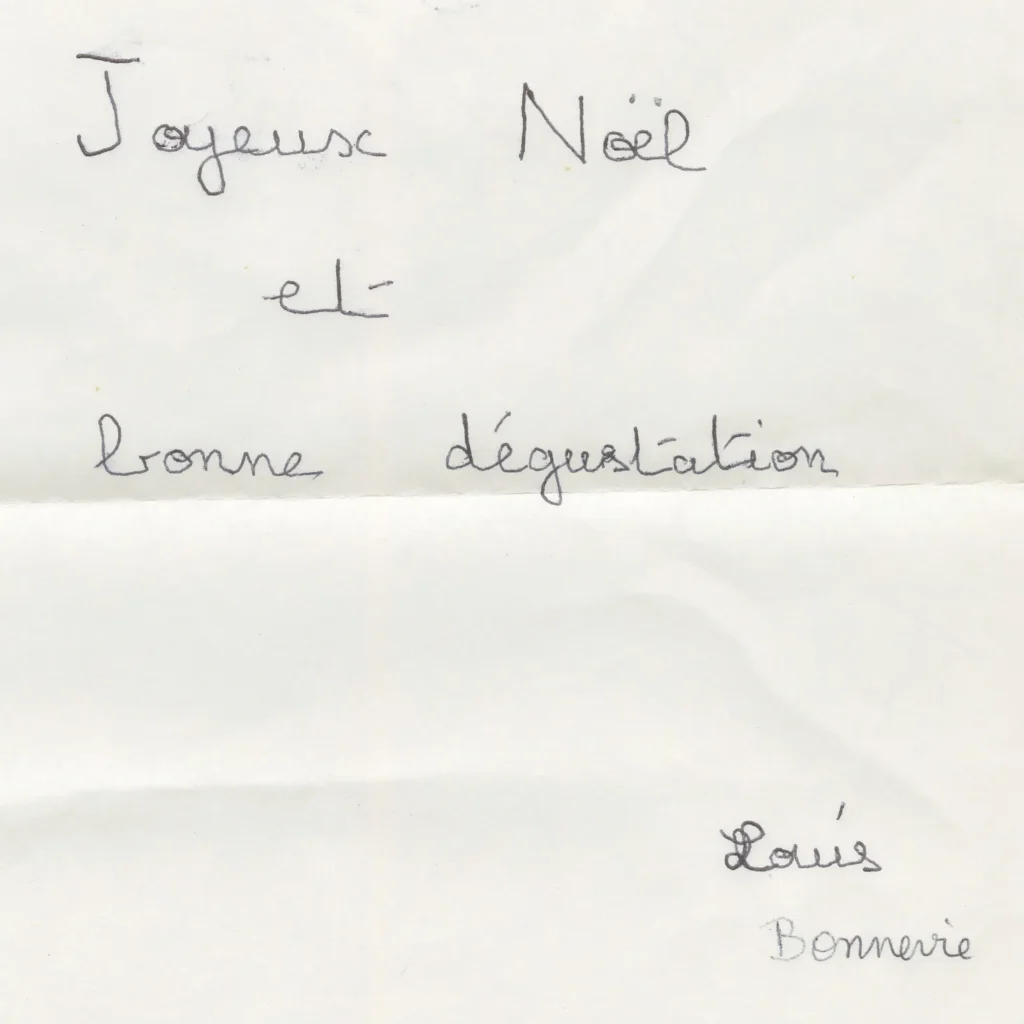 Joyeux Noël
et
bonne dégustation
Louis
Bonnevie